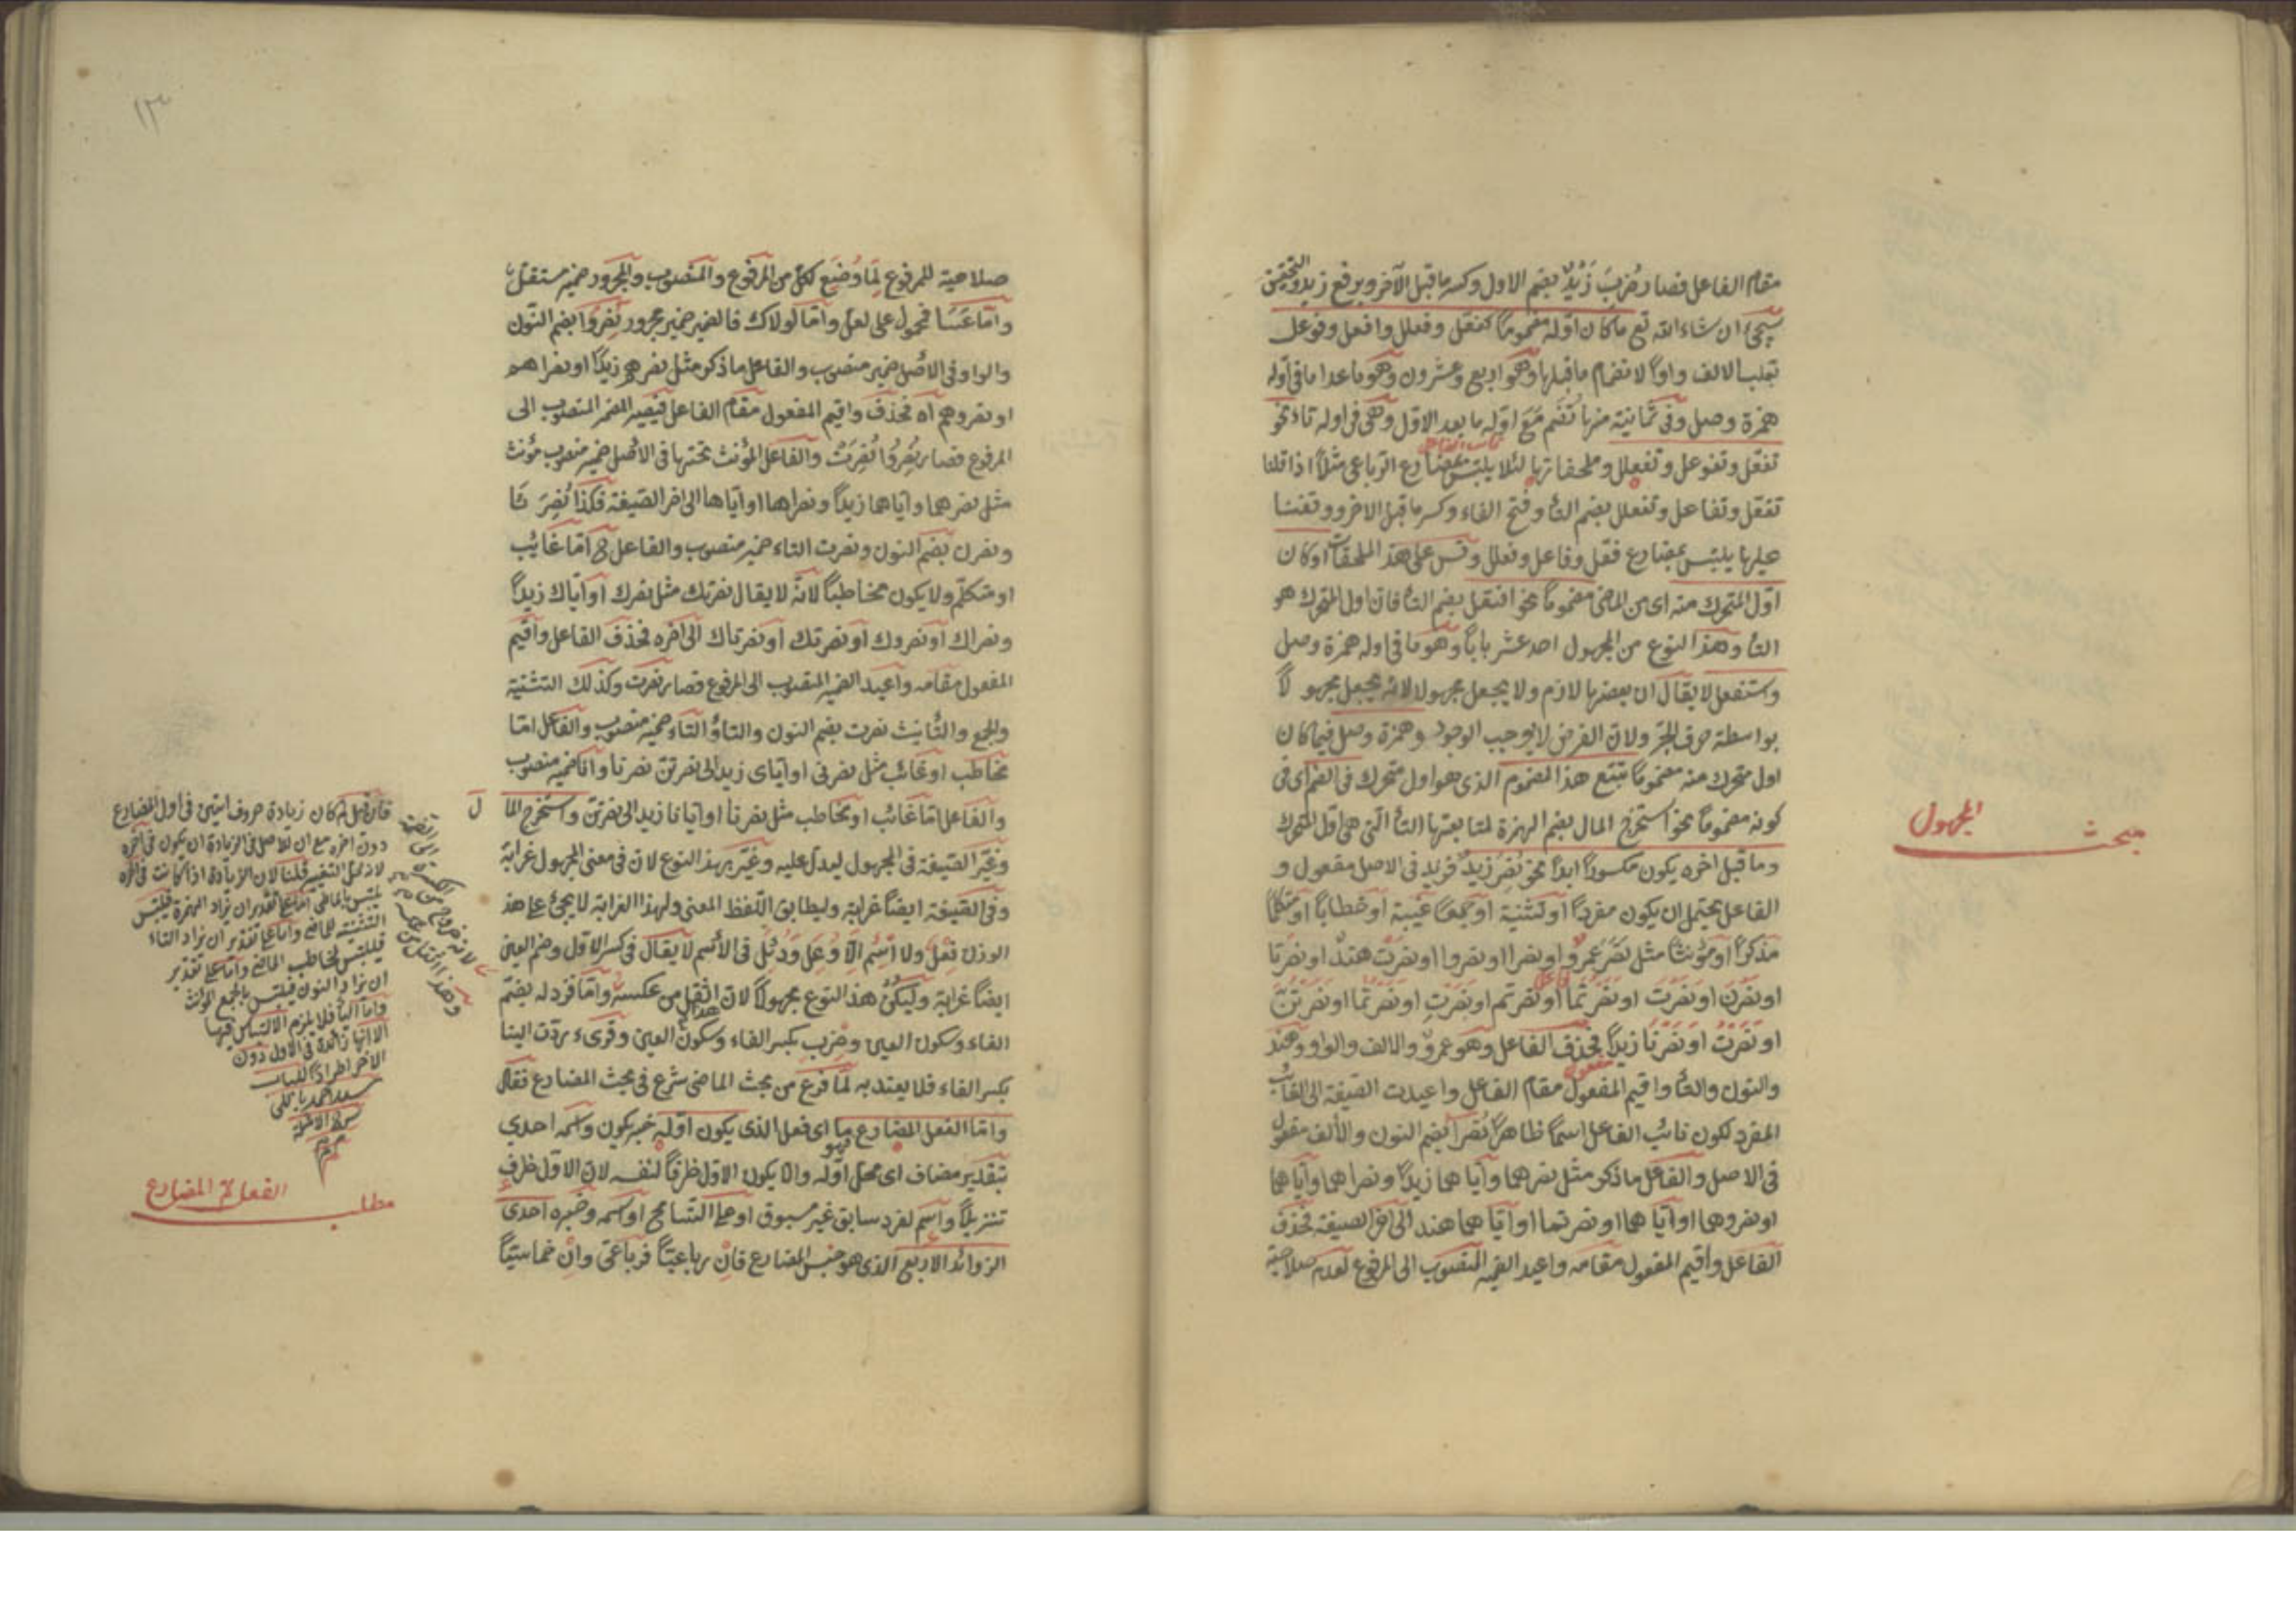 مقام الفاعل فصار ضُرِبَ زَيْدٌ بضم الاول وكسر ما قبل الآخر وبرفع زيد والتحقيق
سيجئ ان شاء الله تع ما كان اوّله مضموما كفعّل وفعلل وافعل وفوعل
تقلب الالف واوًا لانضمام ما قبلها وهو اربع وعشرون وهو ما عدا ما فى اوله
همزة وصل وفى ثمانية منها تُضَم مَعَ اوّله ما بعد الاوّل وهى فى اوله تاء نحو
تفعّل وتفوعل وتفعلل وملحقاتها لئلا يلتبس بمضارع الرباعى مثلًا اذا قلنا
تفعّل وتفاعل وتفعلل بضم التاء وفتح الفاء وكسر ما قبل الاخر ووقفنا
عليها يلتبس بمضارع فعّل وفاعل وفعلل وقس على هذا الملحقات او كان
اوّل المتحرك منه اى من الماضى مضموما نحو افتعل بضم التاء فان اول المتحرك هو
التاء وهذا النوع من المجهول احد عشر بابا وهو ما فى اوله همزة وصل
وستنفعل لا يقال ان بعضها لازم ولا يجعل مجهولا لانه يجعل مجهولًا
بواسطة حرف الجر ولان الفرض لا يوجب الوجود وهمزة وصل فيما كان
اول متحرك منه مضموما تتبع هذا المضموم الذى هو اول متحرك فى الضم اى فى
كونه مضموما نحو استخرج المال بضم الهمزة لمتابعتها التاء التى هى اوّل المتحرك
مبحث المجهول
وما قبل اخره يكون مكسورًا ابدًا نحو نُصِرَ زيدٌ فزيد فى الاصل مفعول و
الفاعل يحتمل ان يكون مفردًا او تثنية او جمعا غيبة او خطابا او متكلما
مذكرًا او مؤنثا مثل نصر عمرو او نصرا او نصروا او نصرت هند او نصرتا
او نصرن او نصرت او نصرتما او نصرتم او نصرتِ او نصرتما او نصرتنّ
او نصرتُ او نصرنا زيدًا فحذف الفاعل وهو عمرو والالف والواو وهند
والنون والتاء واقيم المفعول مقام الفاعل واعيدت الصيغة الى الغائب
المفرد لكون نائب الفاعل اسمًا ظاهرًا نُصِرَا بضم النون والألف مفعول
فى الاصل والفاعل ما ذكر مثل نصرهما وايّاهما زيدًا ونصراهما وايّاهما
او نصروهما او اياهما او نصرتما او اياهما هند الى اخر الصيغة فحذف
الفاعل واقيم المفعول مقامه واعيد الضمير المنصوب الى المرفوع لعدم صلاحية
١٣
صلاحية للمرفوع لِمَا وُضِعَ لكل من المرفوع والمنصوب والمجرور ضمير مستقل
وامّا عَسَا فمحمول على لعلّ وامّا لولاك فالضمير ضمير مجرور نُصِرُوا بضم النّون
والواو فى الاصل ضمير منصوب والفاعل ما ذكر مثل نصرهم زيدًا او نصراهم
او نصروهم اه فحذف واقيم المفعول مقام الفاعل فيصير المضمر المنصوب الى
المرفوع فصار نُصِرُوا نُصِرَتْ والفاعل المؤنث تحتها فى الاصل ضمير منصوب مؤنث
مثل نصرهما وايّاهما زيدًا ونصراها او ايّاها الى اخر الصّيغة فكذا نُصِرَتَا
ونصرن بضم النون ونصرت التاء ضمير منصوب والفاعل ح امّا غائب
او متكلم ولا يكون مخاطبًا لانّه لا يقال نصرتك مثل نصرك او ايّاك زيدًا
ونصراك او نصروك او نصرتك او نصرتاك الى اخره فحذف الفاعل واقيم
المفعول مقامه واعيد الضمير المنصوب الى المرفوع فصار نصرت وكذلك التثنية
والجمع والتّأنيث نصرت بضم النون والتاء والتاء ضمير منصوب والفاعل امّا
مخاطب او غائب مثل نصرنى او اياى زيد الى نصرتنّ نصرنا وانا ضمير منصوب
والفاعل امّا غائب او مخاطب مثل نصرنا او ايّانا زيد الى نصرتنّ واستخرج المال
وغيّر الصّيغة فى المجهول ليدل عليه وغيّر بهذا النوع لان فى معنى المجهول غرابة
وفى الصّيغة ايضًا غرابة وليطابق اللّفظ المعنى ولهذا الغرابة لا يجئ على هذا
الوزن فِعُلَ ولا اسم الّا وُعِل ودُئِل فى الأسم لا يقال فى كسر الاوّل وضم العين
ايضًا غرابة وليكن هذا النوع مجهولًا لان اثقل من عكسه وامّا فزد له بضمّ
الفاء وسكون العين وضرب بكسر الفاء وسكون العين وقرىء ردّت الينا
بكسر الفاء فلا يعتد به لمّا فرغ من بحث الماضى شرع فى بحث المضارع فقال
وامّا الفعل المضارع فهو ما اى فعل الذى يكون اوّله خبر يكون واسمه احدى
بتقدير مضاف اى محل اوّله والّا يكون الاوّل ظرفًا لنفسه لان الاوّل ظرف
تنزيلًا واسم لفرد سابق غير مسبوق او على التّسامح او اسمه وخبره احدى
الزوائد الاربع الذى هو جنس المضارع فان رباعيًّا فرباعىّ وان خماسيًّا
فان قيل لم كان زيادة حروف اتين فى اول المضارع
دون اخره مع ان الاصل فى الزيادة ان يكون فى اخره
لانه محل التغيير قلنا لان الزيادة اذا كانت فى اخره
يلتبس بالماضى امّا على تقدير ان يزاد الهمزة فيلتبس
التثنيته الماضى وامّا على تقدير ان يزاد التاء
فيلتبس المخاطب الماضى وامّا على تقدير
ان يزاد النون فيلتبس بالجمع المؤنث
وامّا الياء فلا يلزم الالتباس فيها
الا انها زائدة فى الاول دون
الاخر اطرادًا للباب
مطلب الفعل المضارع